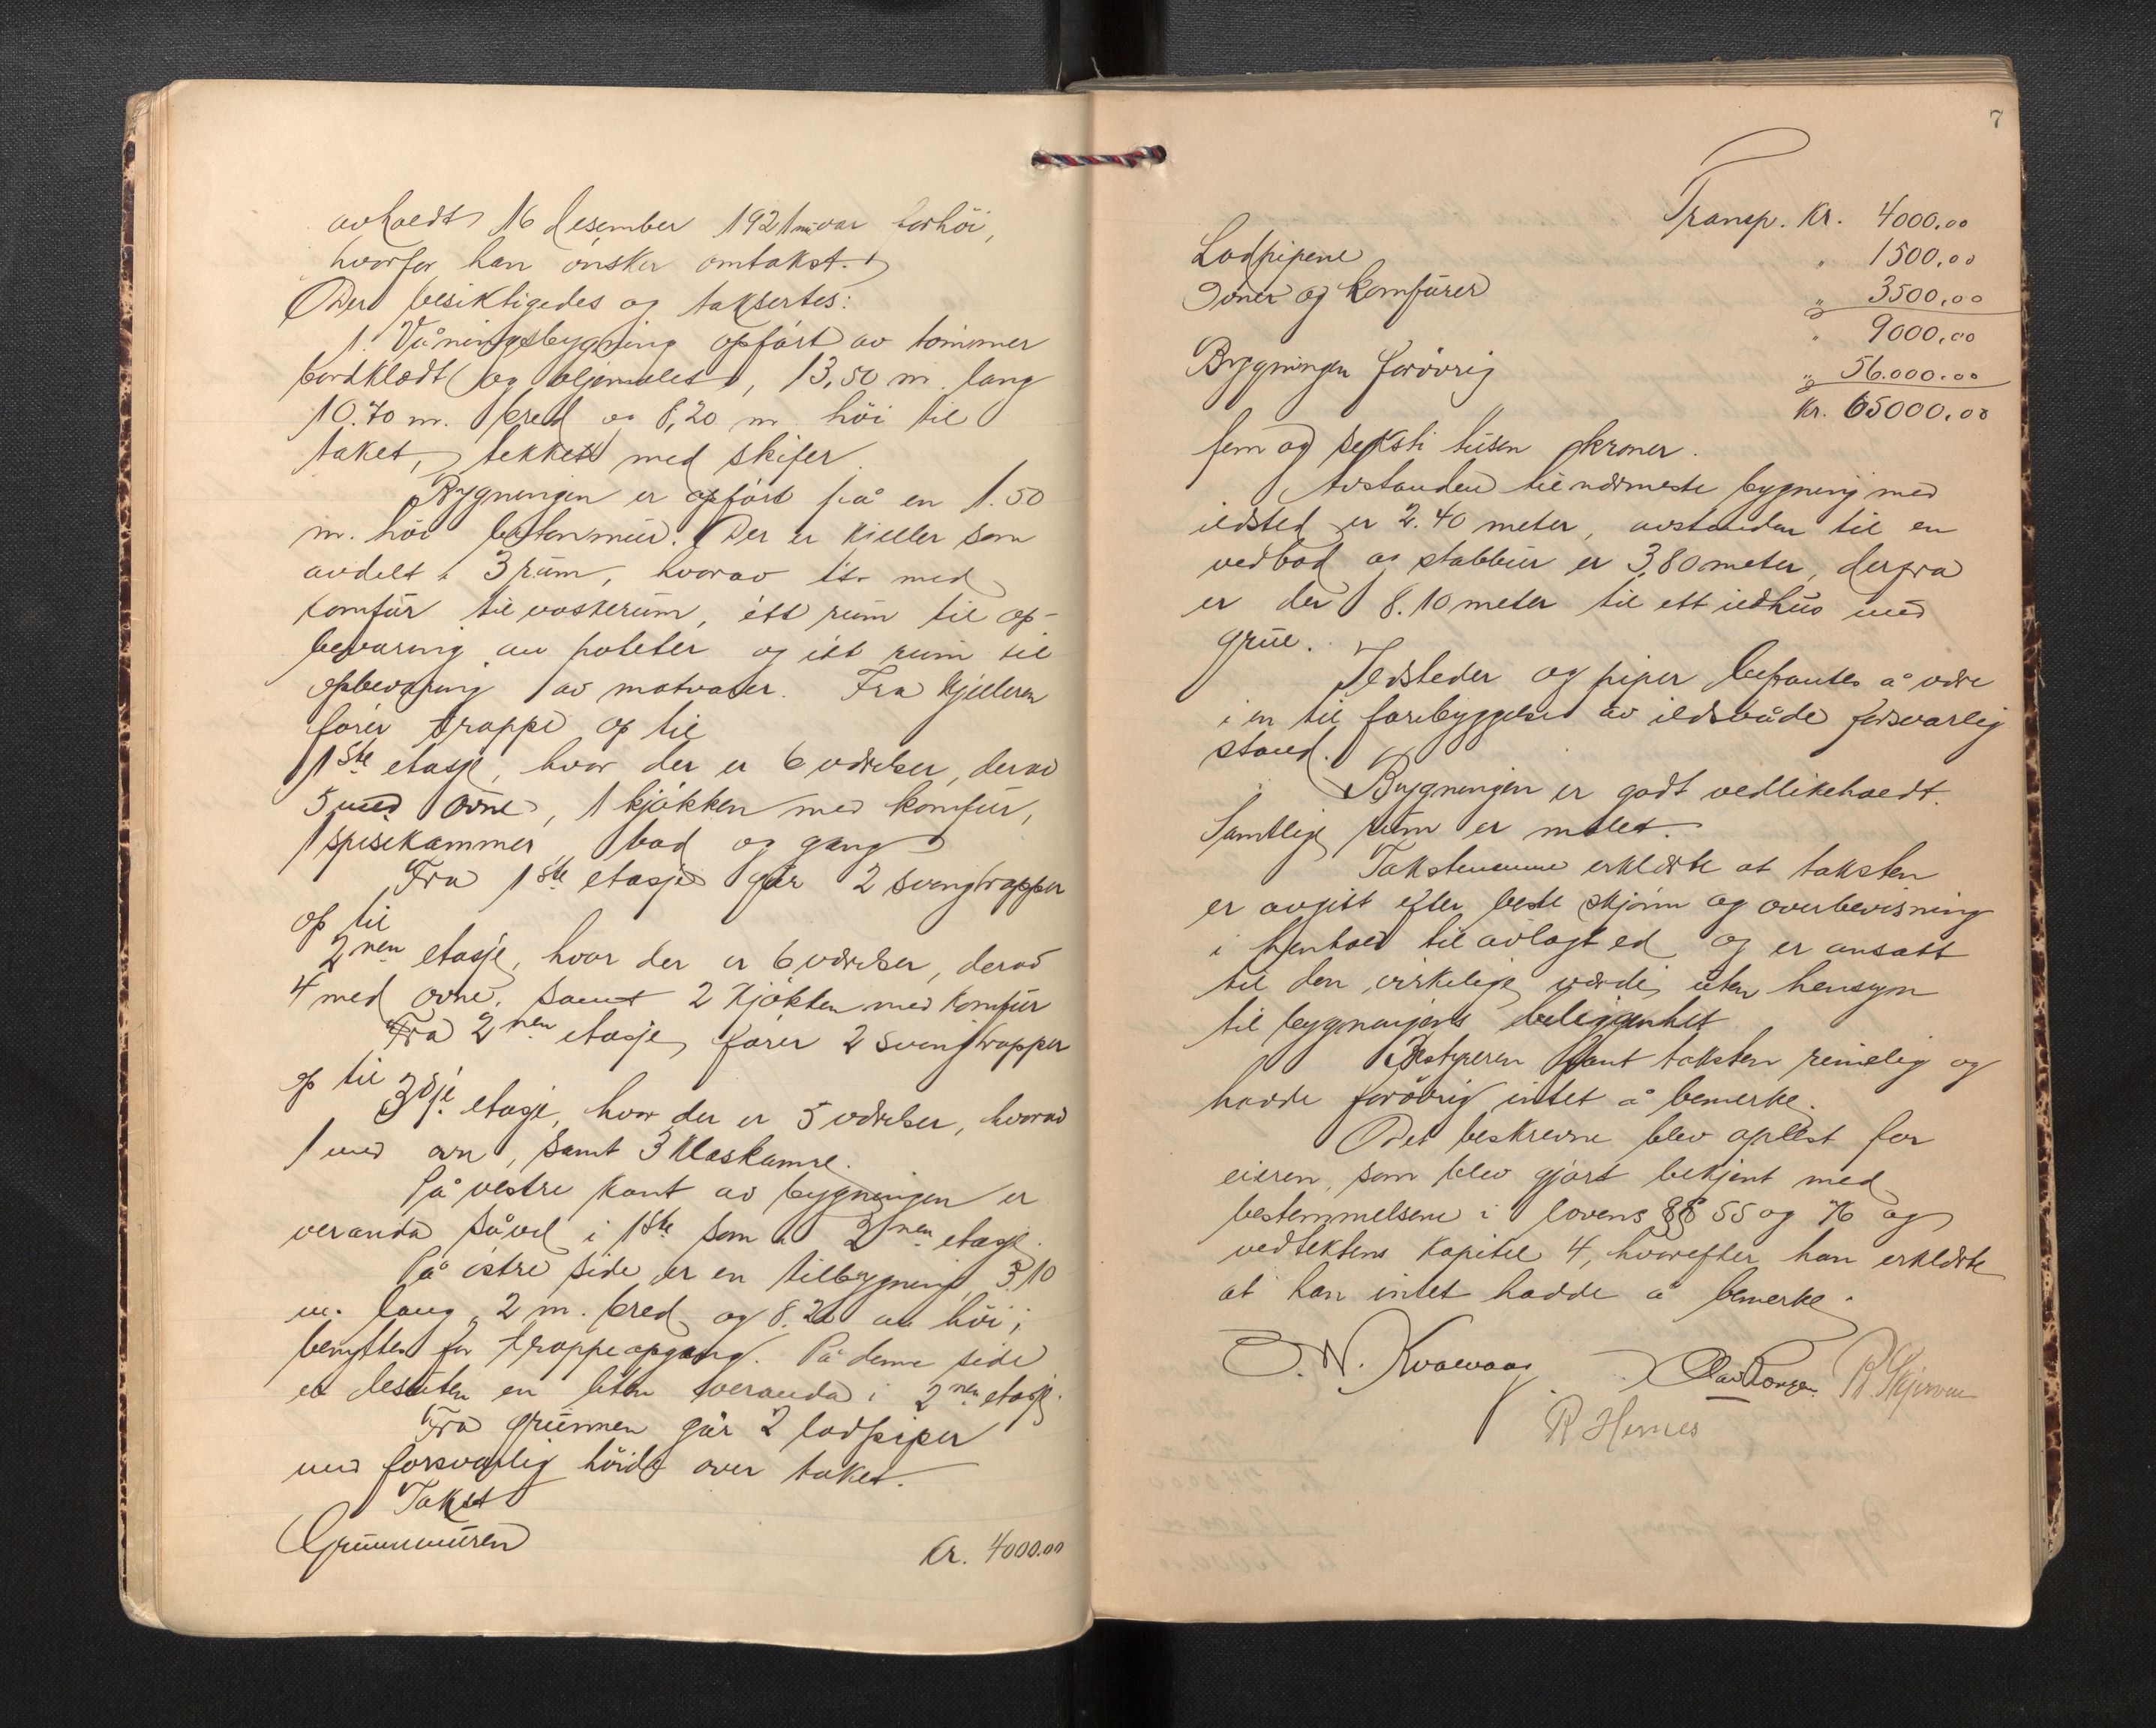 avholdt 16 desember 1921 var forhöi,
hvorfor han önsker omtakst.
Der besiktigedes og taksertes:
1. Våningsbygning opfört av tömmer
bordklædt og oljemalet, 13,50 m. lang
10.70 m. bred og 8,20 m höi til
taket, tekket med skifer.
Bygningen er opfört på en 1.50
m. höi betonmur. Der er kjeller som
avdelt i 3 rum, hvorav et med
komfür til vaskerum, ett rum til op-
bevaring av poteter og ett rum til
opbevaring av matvarer. Fra kjelleren
förer trappe op til
1ste etasje, hvor der er 6 værelser, derav
5 med ovne, 1 kjökken med komfür,
1 spisekammer, bad og gang
Fra 1ste etasje går 2 svingtrapper
op til
2nen etasje, hvor der er 6 værelser, derav
4 med ovne, samt 2 kjökken med komfür
Fra 2nen etasje förer 2 svingtrapper
op til
3dje etasje, hvor der er 5 værelser, hvorav
1 med ovn, samt 3 klæskamre.
På vestre kant av bygningen er
veranda såvel i 1ste som i 2nen etasje.
På östre side er en tilbygning 3.10
m. lang, 2 m. bred og 8.20 m höi,
benyttes for trappeopgang. På denne side
er desuten en liten veranda i 2nen etasje.
Fra grunnen går 2 lodpiper
med forsvarlig höide over taket.
Takst
Grunnmuren Kr. 4000.00
7
Transp. Kr. 4000,00
Lodpipene " 1500,00
Ovner og komfürer " 3500,00
" 9000,00
Bygningen forövrig " 56.000.00
Kr. 65000,00
fem og seksti tusen kroner.
Avstanden til nærmeste bygning med
ildsted er 2.40 meter, avstanden til en
vedbod og stabbur er 3,80 meter, derfra
er der 8.10 meter til ett ildhus med
grue.
Ildsteder og piper befantes å være
i en til forebyggelse av ildsvåde forsvarlig
stand.
Bygningen er godt vedlikeholdt.
Samtlige rum er malet.
Takstmennene erklærte at taksten
er avgitt efter beste skjönn og overbevisning
i henhold til avlagt ed og er ansatt
til den virkelige verdi uten hensyn
til bygningens beliggenhet
Bestyreren fant taksten rimelig og
hadde forövrig intet å bemerke.
Det beskrevne blev oplest for
eieren, som blev gjort bekjent med
bestemmelsene i lovens §§ 55 og 76 og
vedtektens kapitel 4, hvorefter han erklærte
at han intet hadde å bemerke.
O. N. Kvalvaag Olav R. Skjervum
R Hernes